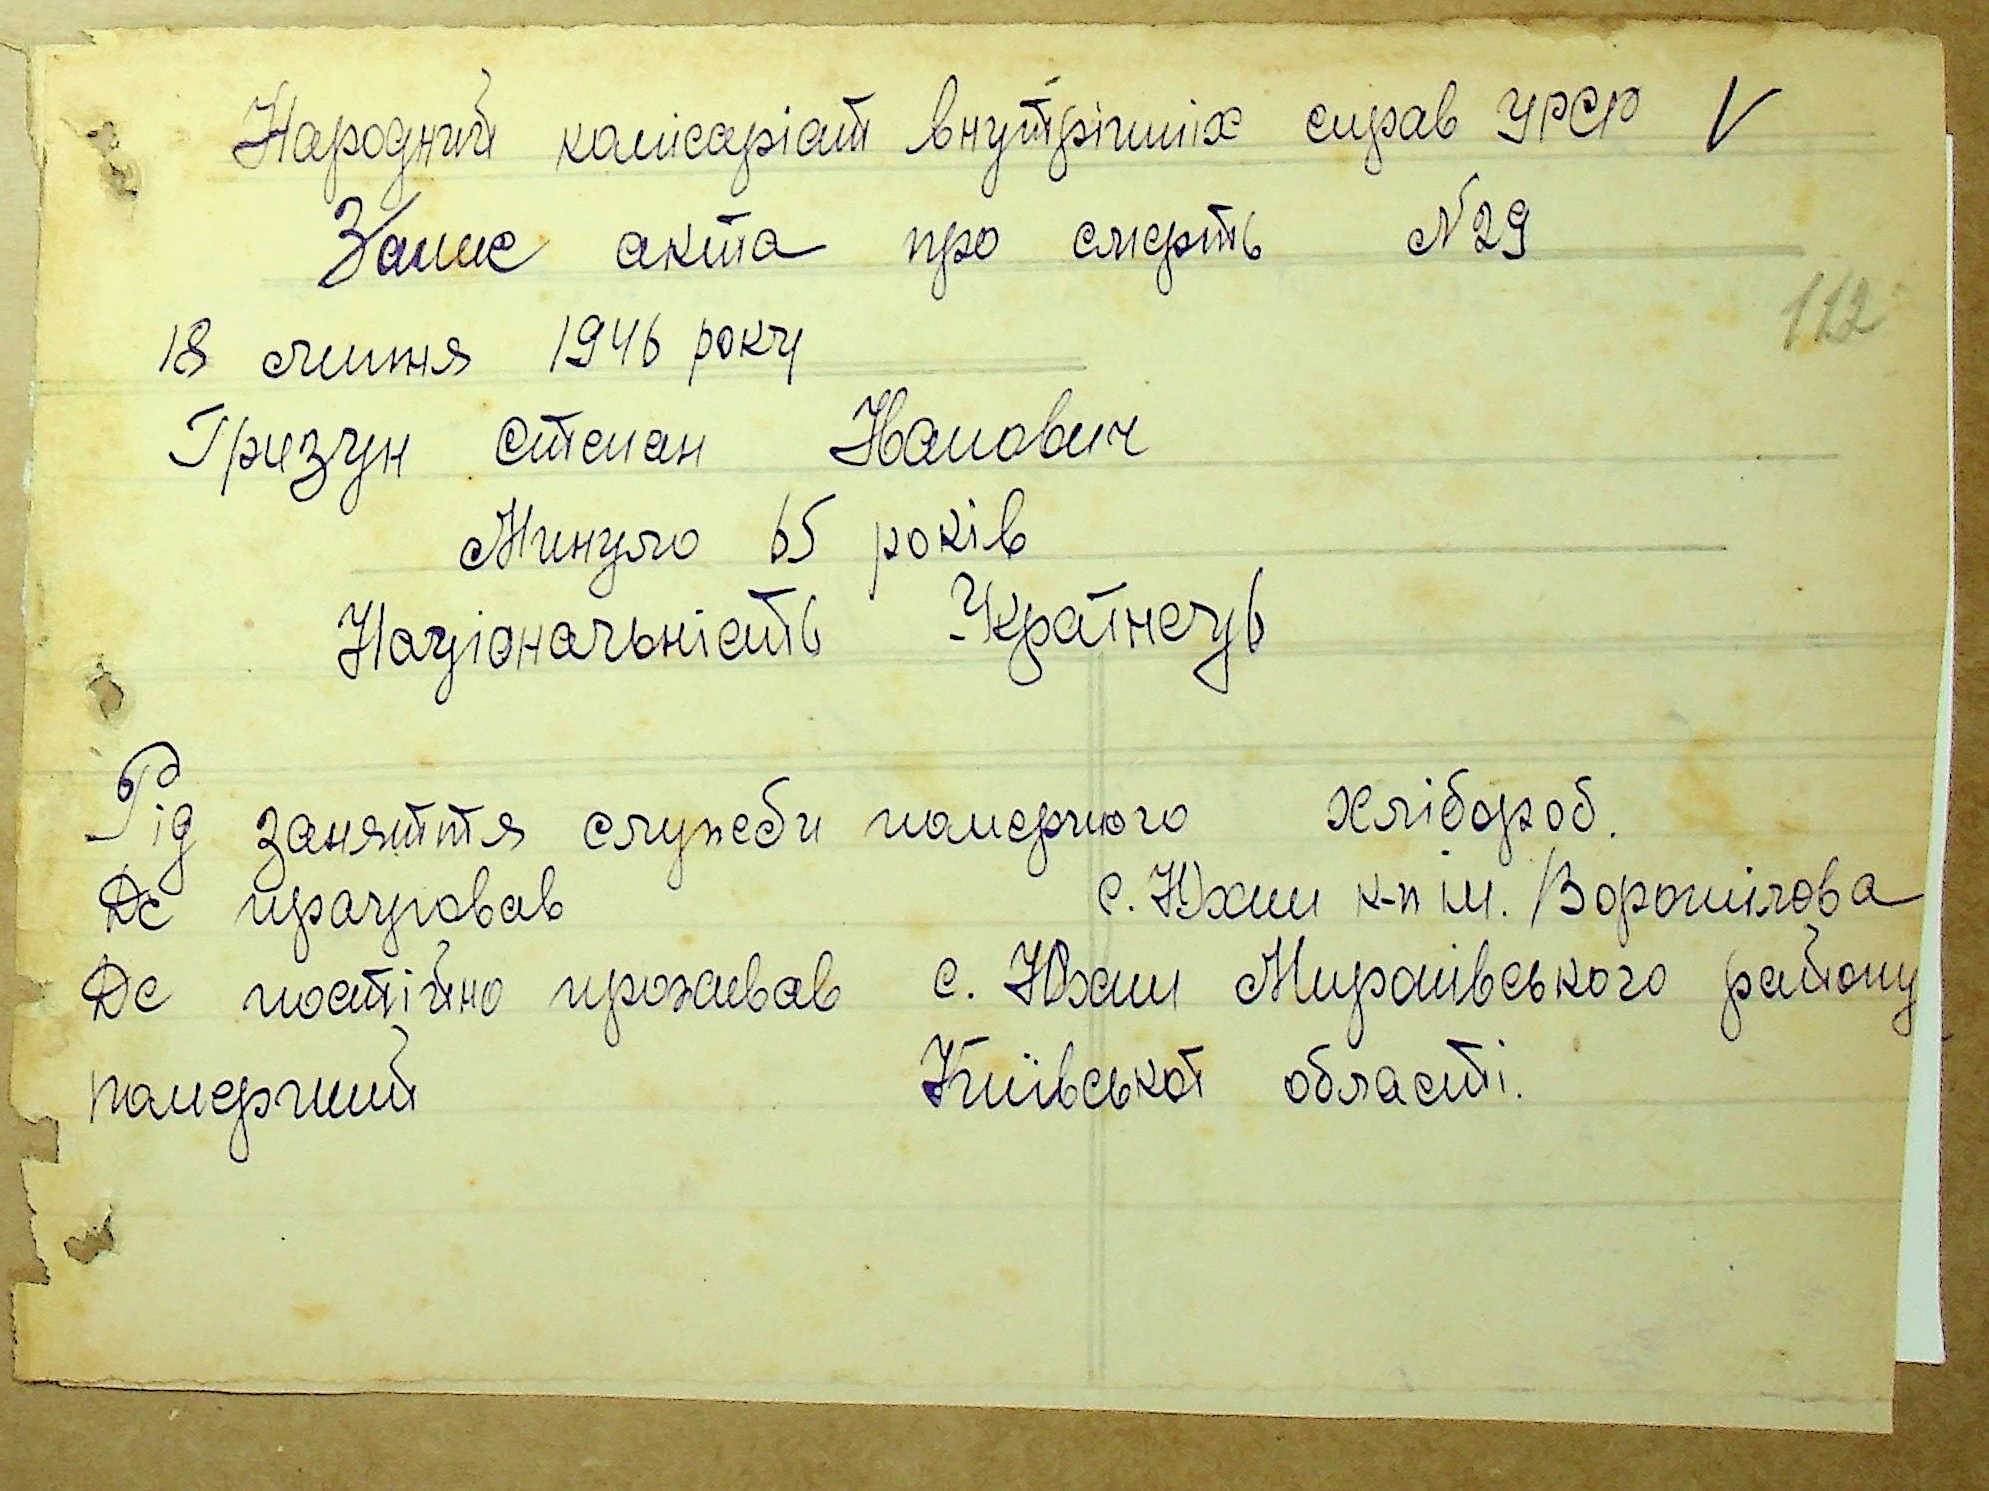 Народний комісаріат внутрішніх справ УРСР V
Запис акта про смерть N 29
112
18 липня 1946 року
Гризун Степан Іванович
Минуло 65 років
Національність Українець
Рід заняття служби помершого хлібороб.
Де працював с. Юхни к-п ім. Ворошилова
Де постійно проживав с. Юхни Миронівського району
померший Київської області.